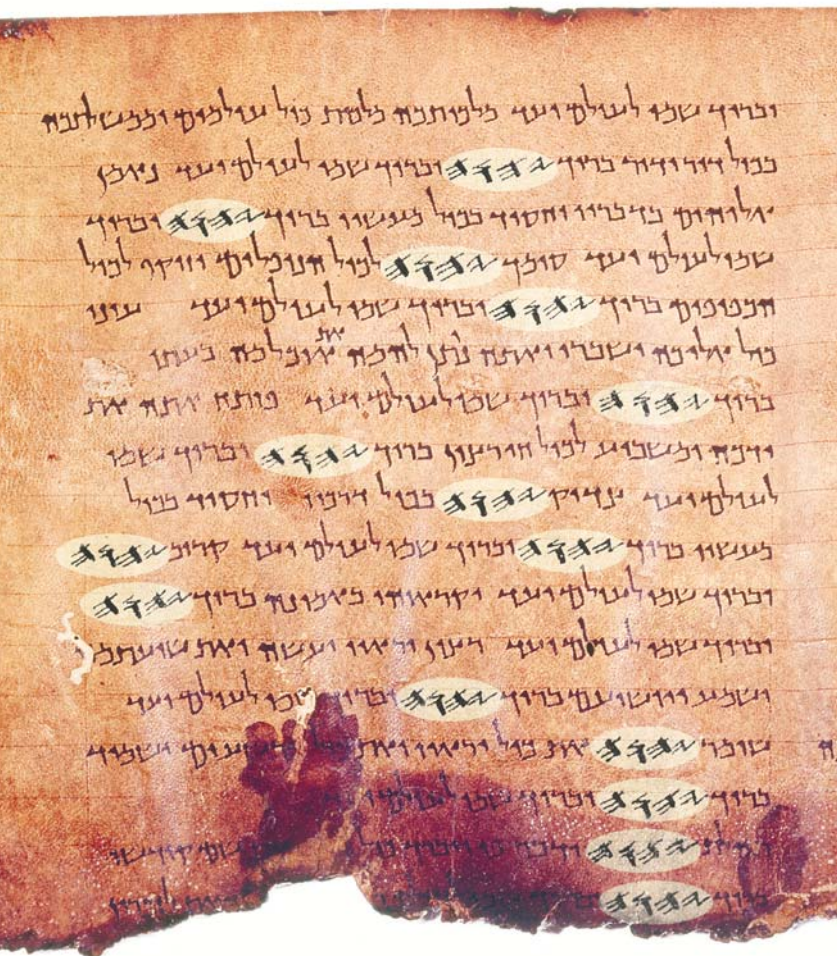 וברוך שמו לעולם ועד מלכותכה מלכות כול עולמים וממשלתכה
בכול דור ודור ברוך 𐤉𐤄𐤅𐤄 וברוך שמו לעולם ועד נאמן
אלוהים בדבריו וחסיד בכול מעשיו ברוך 𐤉𐤄𐤅𐤄 וברוך
שמו לעולם ועד סומך 𐤉𐤄𐤅𐤄 לכול הנופלים וזוקף לכול
הכפופים ברוך 𐤉𐤄𐤅𐤄 וברוך שמו לעולם ועד עיני
כול אליכה ישברו ואתה נותן להמה את אוכלמה בעתו
ברוך 𐤉𐤄𐤅𐤄 וברוך שמו לעולם ועד פותח אתה את
ידכה ומשביע לכול חי רצון ברוך 𐤉𐤄𐤅𐤄 וברוך שמו
לעולם ועד צדיק 𐤉𐤄𐤅𐤄 בכול דרכיו וחסיד בכול
מעשיו ברוך 𐤉𐤄𐤅𐤄 וברוך שמו לעולם ועד קרוב 𐤉𐤄𐤅𐤄
וברוך שמו לעולם ועד יקראוהו באמונה ברוך 𐤉𐤄𐤅𐤄
וברוך שמו לעולם ועד רצון יראיו יעשה ואת שועתמה
ישמע ויושיעם ברוך 𐤉𐤄𐤅𐤄 וברוך שמו לעולם ועד
שומר 𐤉𐤄𐤅𐤄 את כול יראיו ואת כול רשעים ישמיד
ברוך 𐤉𐤄𐤅𐤄 וברוך שמו לעולם ועד
תהילת 𐤉𐤄𐤅𐤄 ידבר פי ויברך כול שם קודשו
ברוך 𐤉𐤄𐤅𐤄